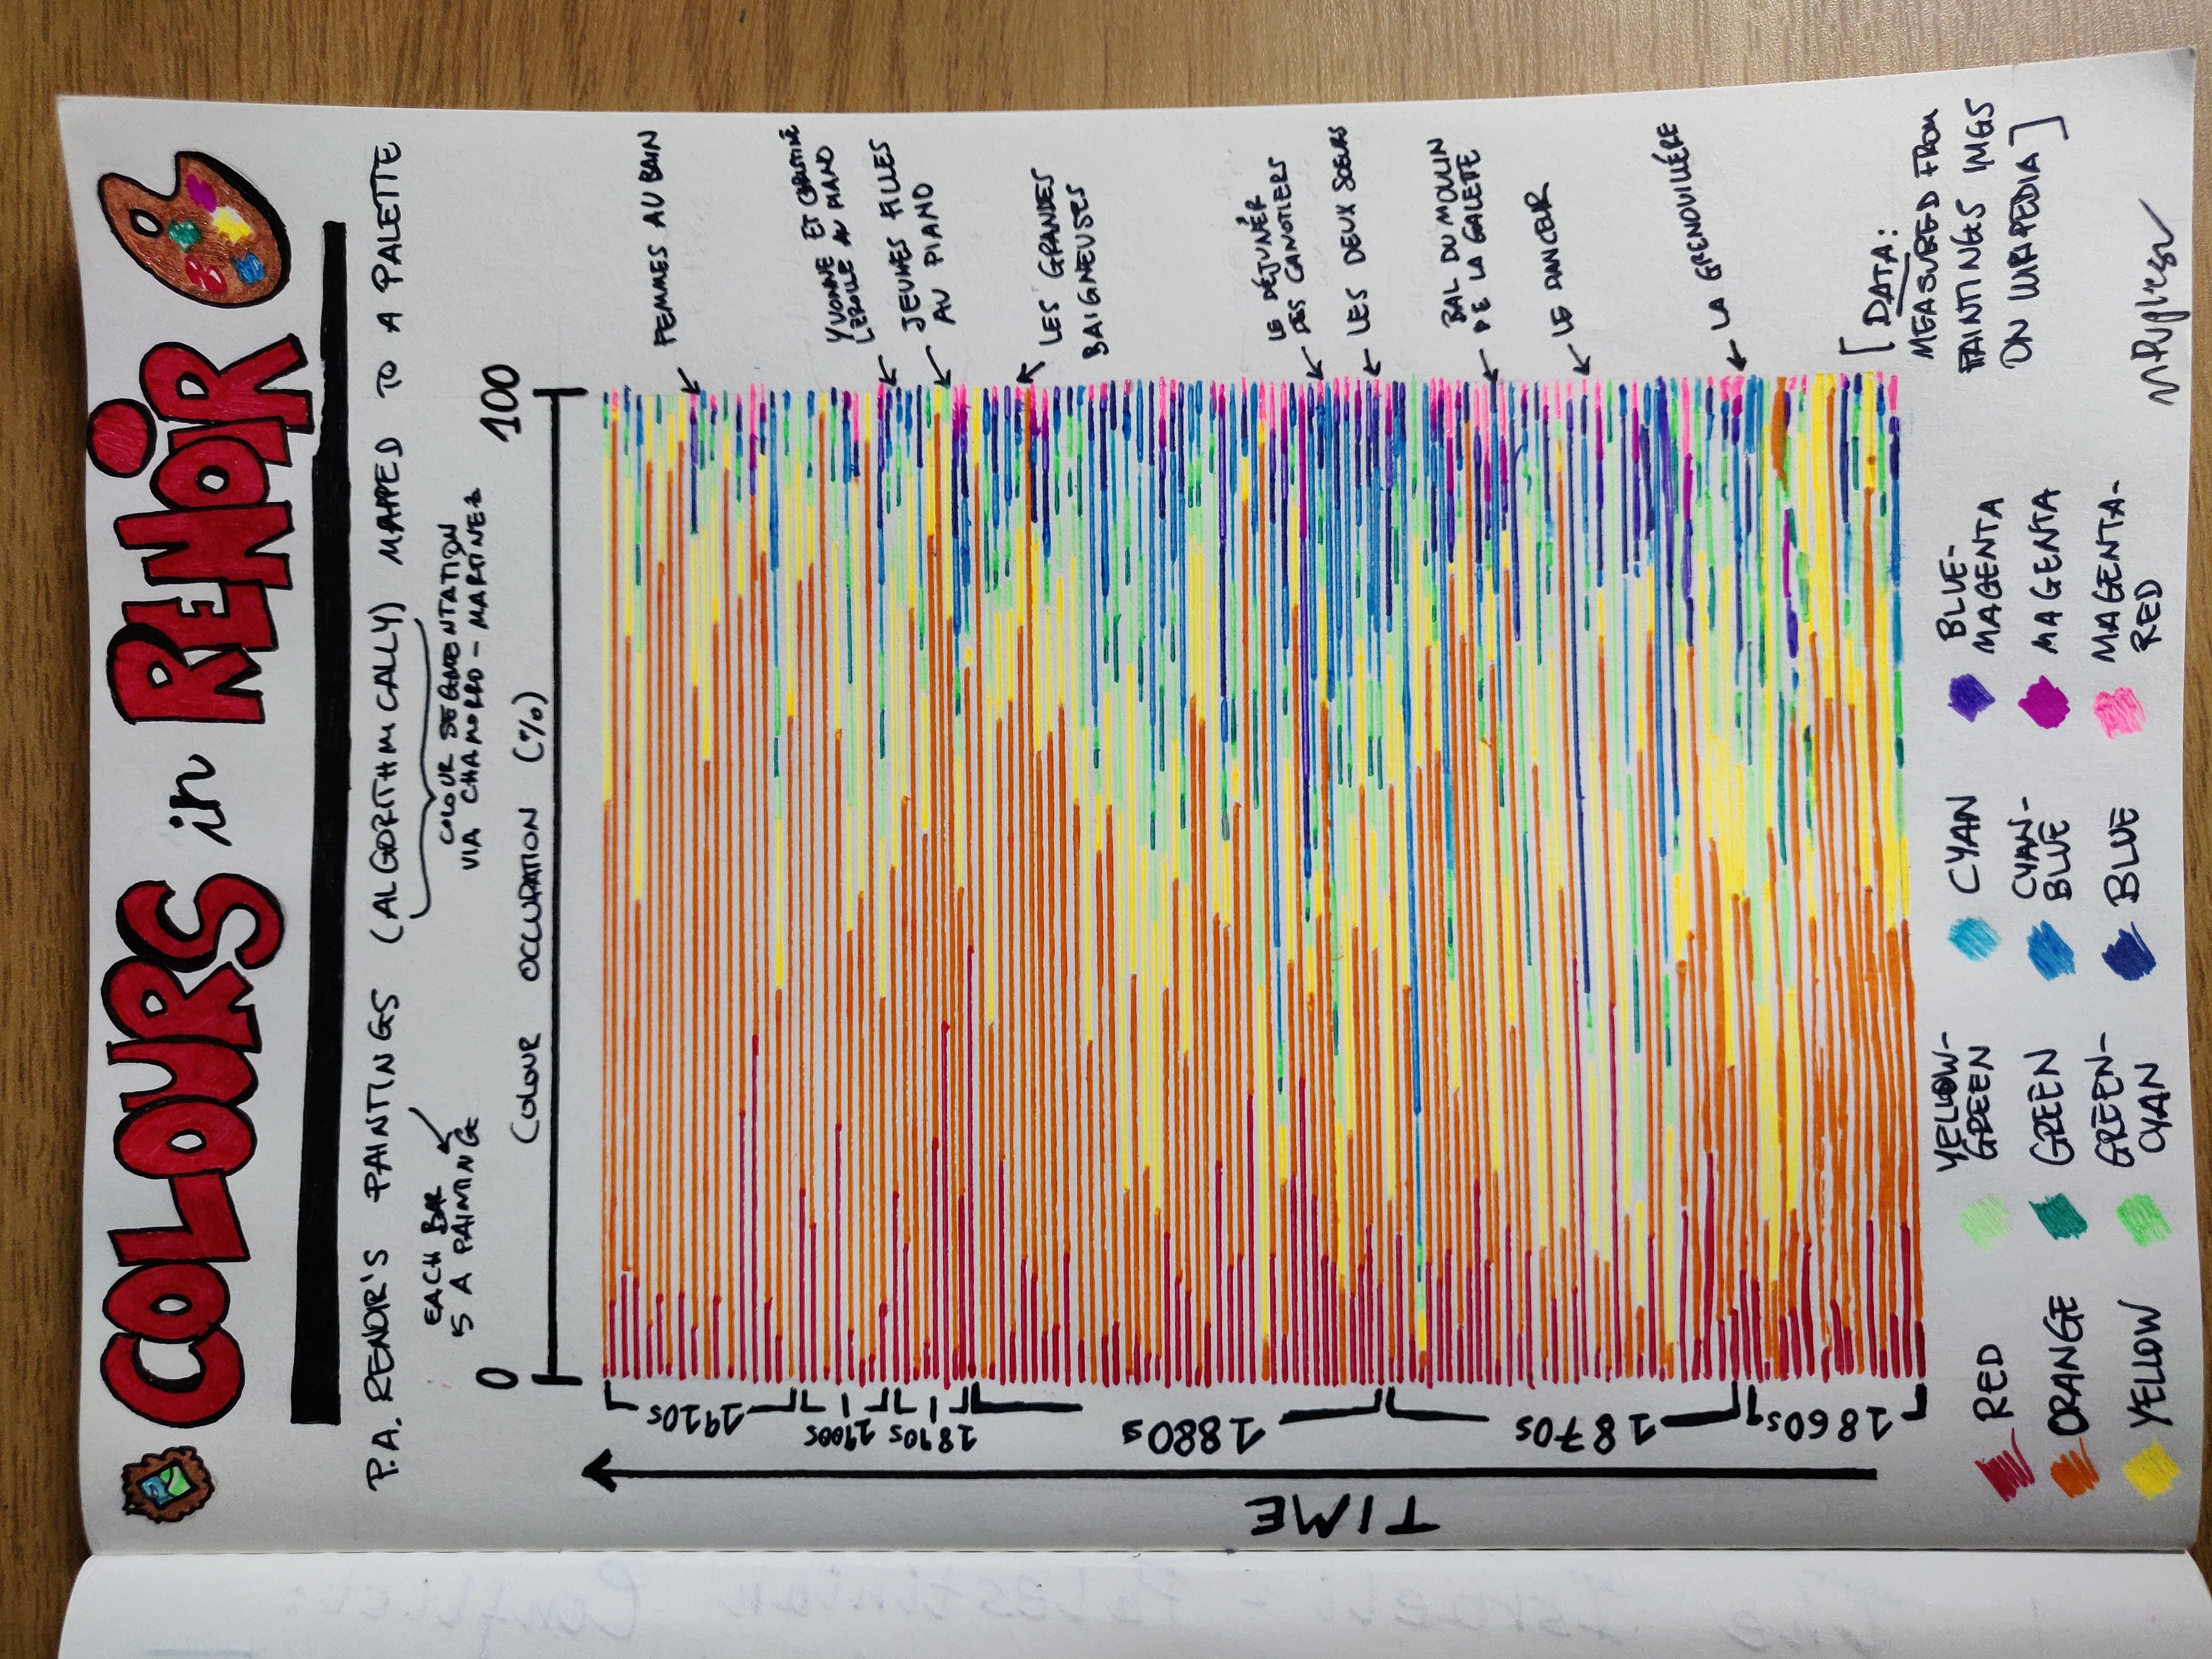 COLOURS in RENOIR
P.A. RENOIR'S PAINTINGS (ALGORITHMICALLY) MAPPED TO A PALETTE
EACH BAR
IS A PAINTING
COLOUR SEGMENTATION
VIA CHAMORRO-MARTINEZ
COLOUR OCCUPATION (%)
0
100
TIME
1910s
1900s
1890s
1880s
1870s
1860s
FEMMES AU BAIN
YVONNE ET CHRISTINE
LEROLLE AU PIANO
JEUNES FILLES
AU PIANO
LES GRANDES
BAIGNEUSES
LE DÉJUNÉR
DES CANOTIERS
LES DEUX SOEURS
BAL DU MOULIN
DE LA GALETTE
LE DANCEUR
LA GRENOUILLÉRE
RED
ORANGE
YELLOW
YELLOW-
GREEN
GREEN
GREEN-
CYAN
CYAN
CYAN-
BLUE
BLUE
BLUE-
MAGENTA
MAGENTA
MAGENTA-
RED
[DATA:
MEASURED FROM
PAINTINGS IMGS
ON WIKIPEDIA]
MPugliese
Israeli - Palestinian Conflict: